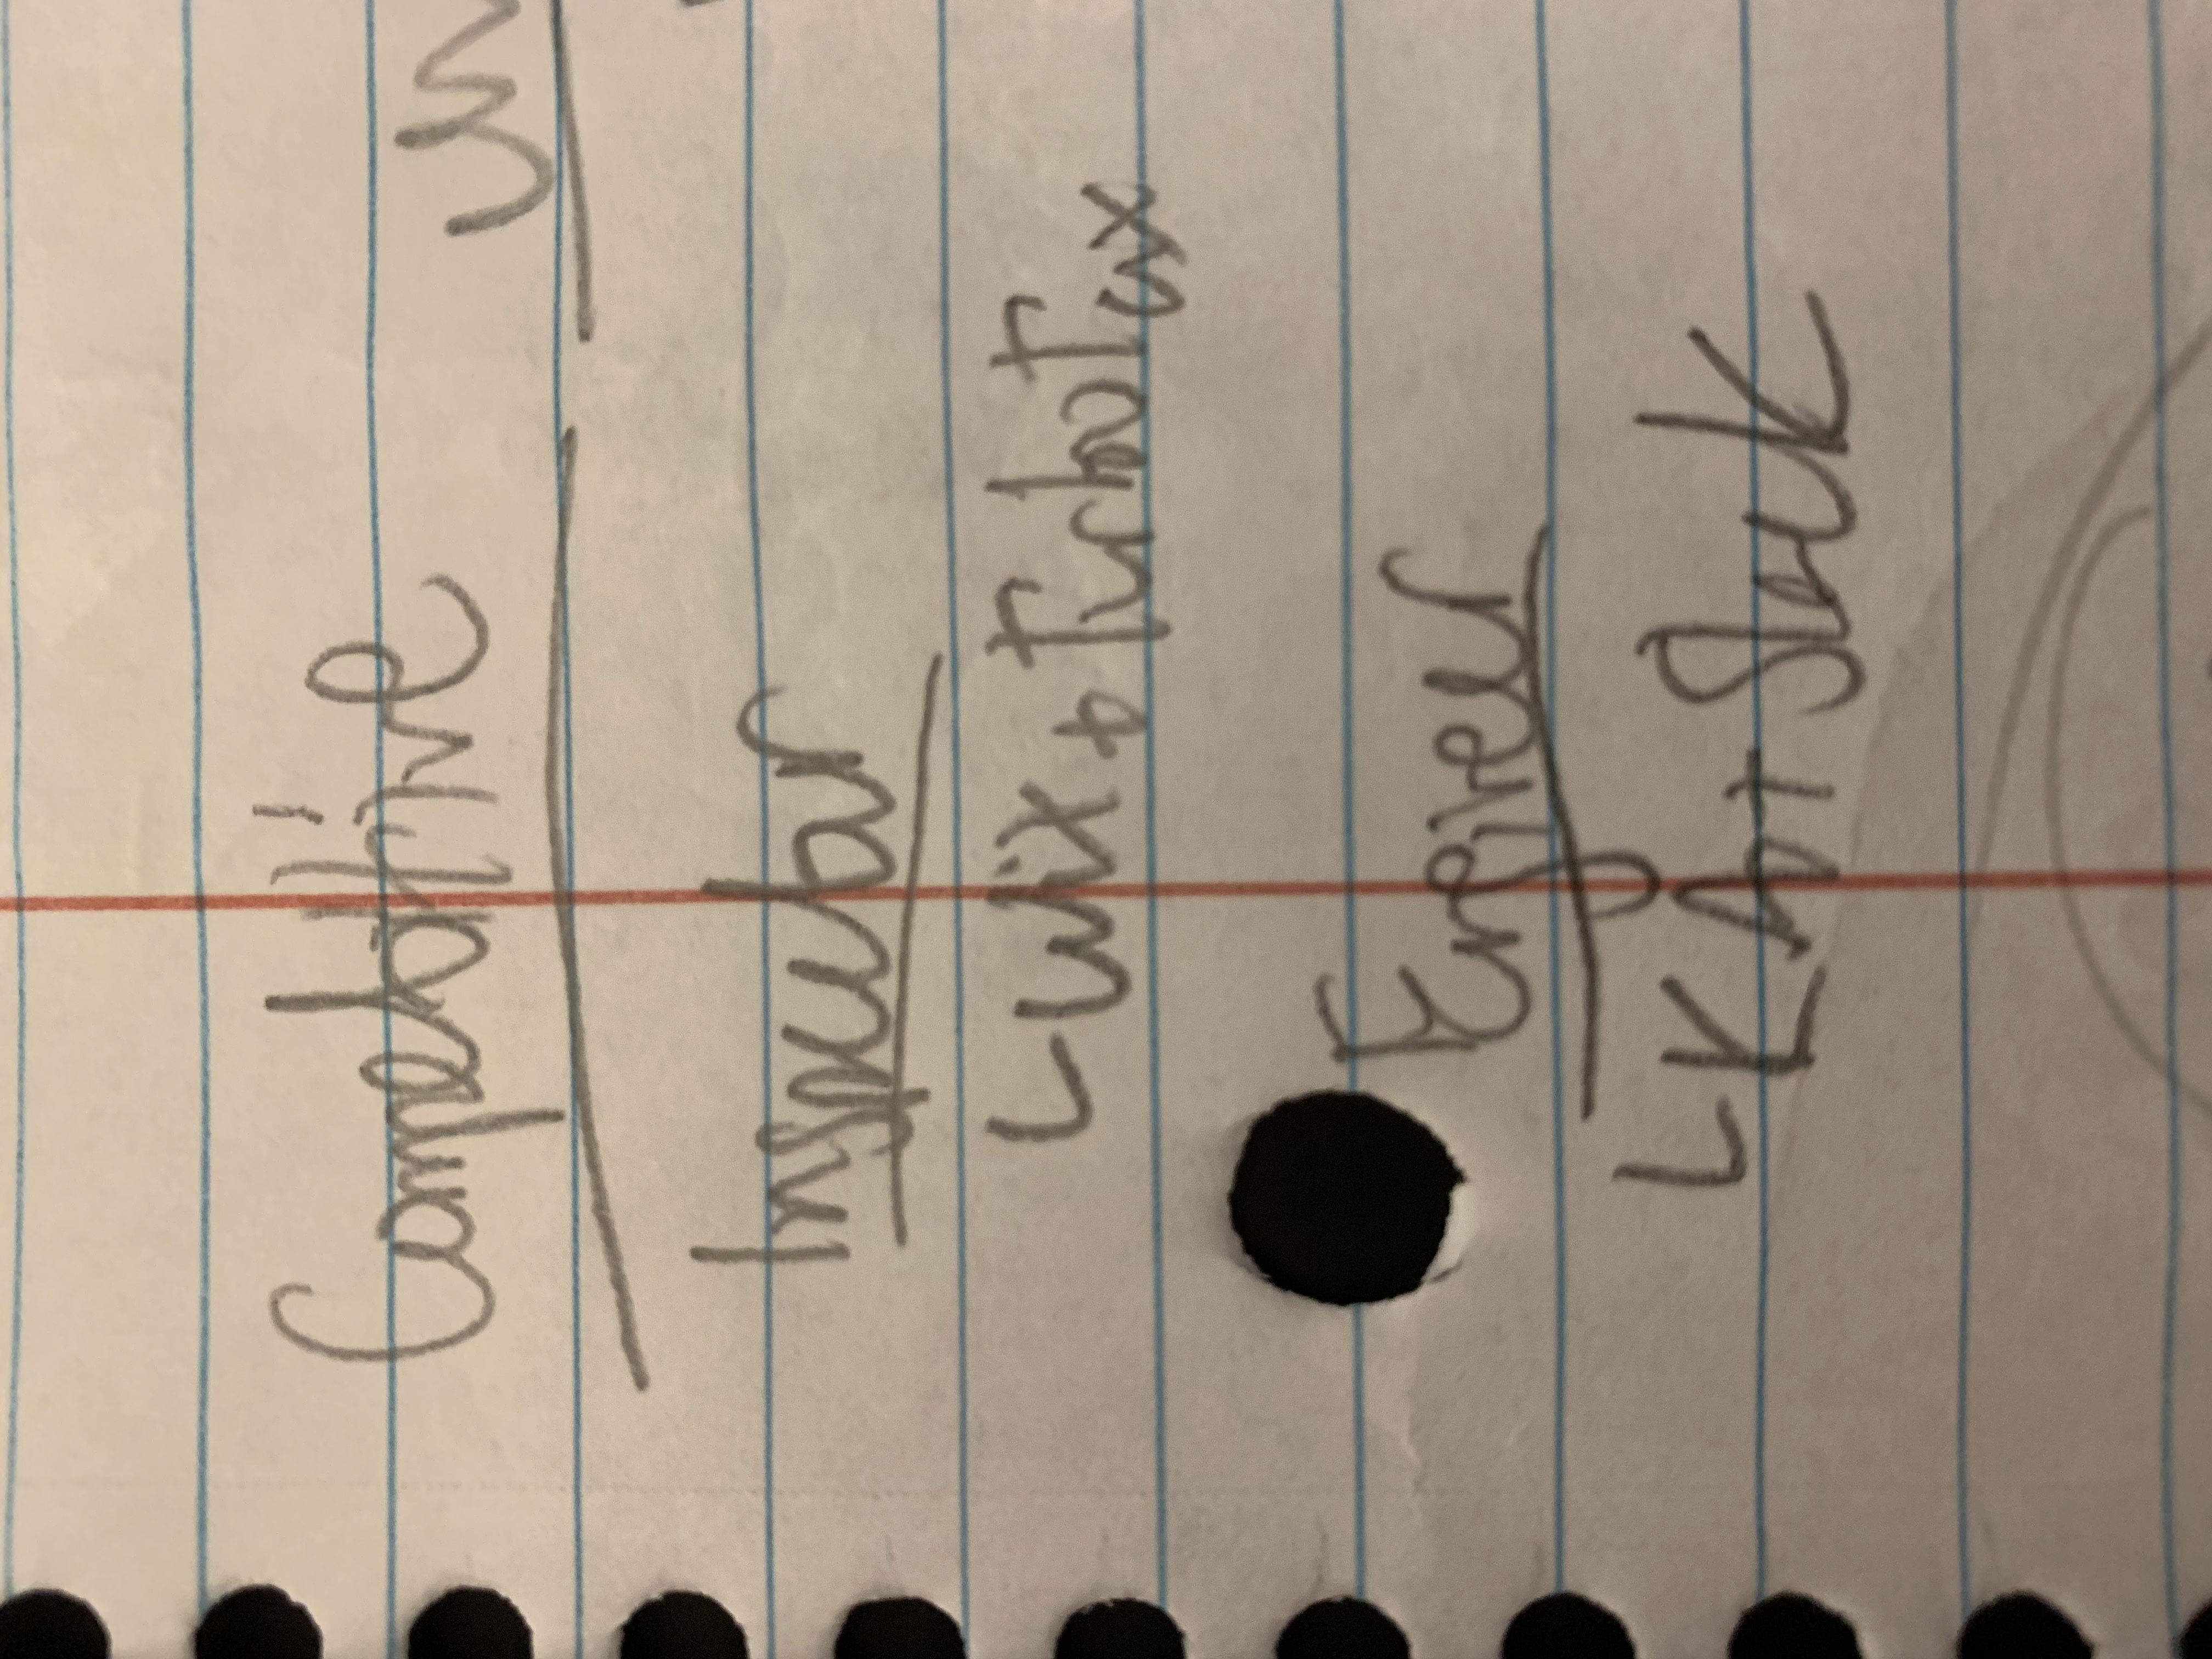 Competative
Inspector
Wix + TurboTax
Engineer
KA + Slack